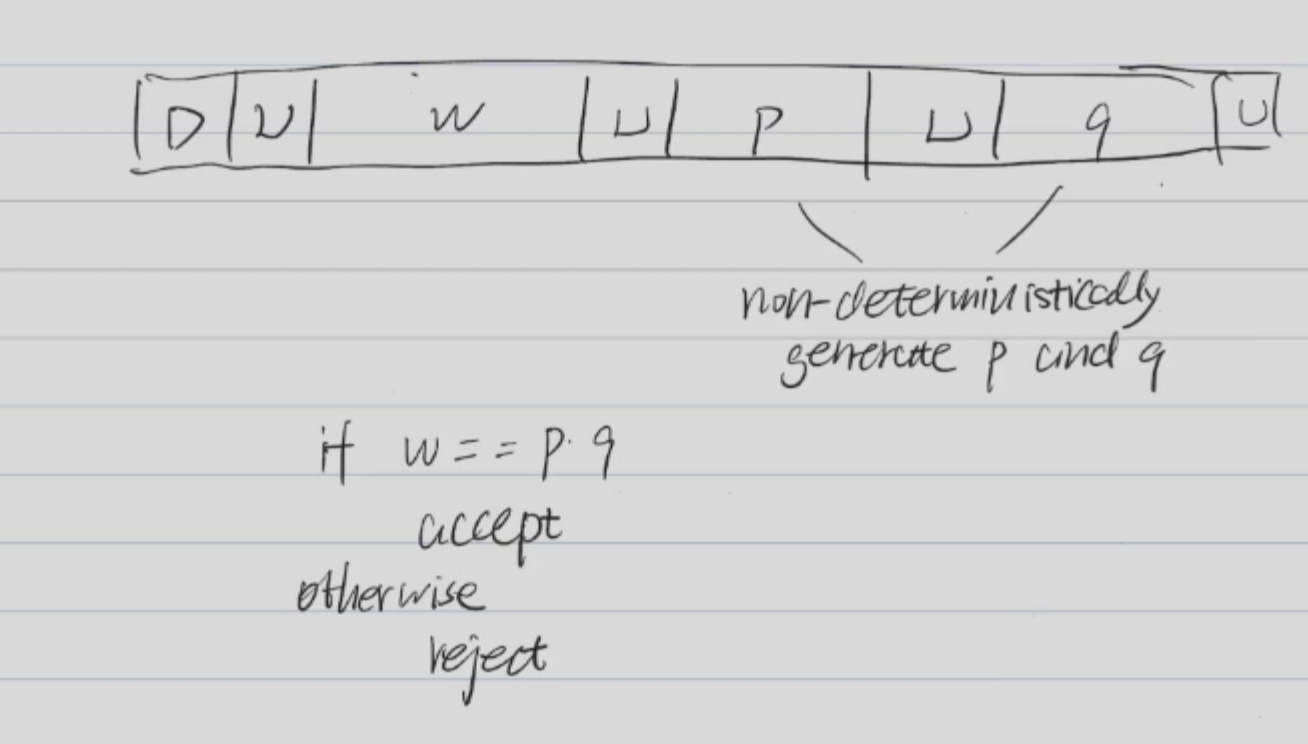 D ⊔ w ⊔ p ⊔ q ⊔
non-deterministically
generate p and q
if w == p · q
accept
otherwise
reject